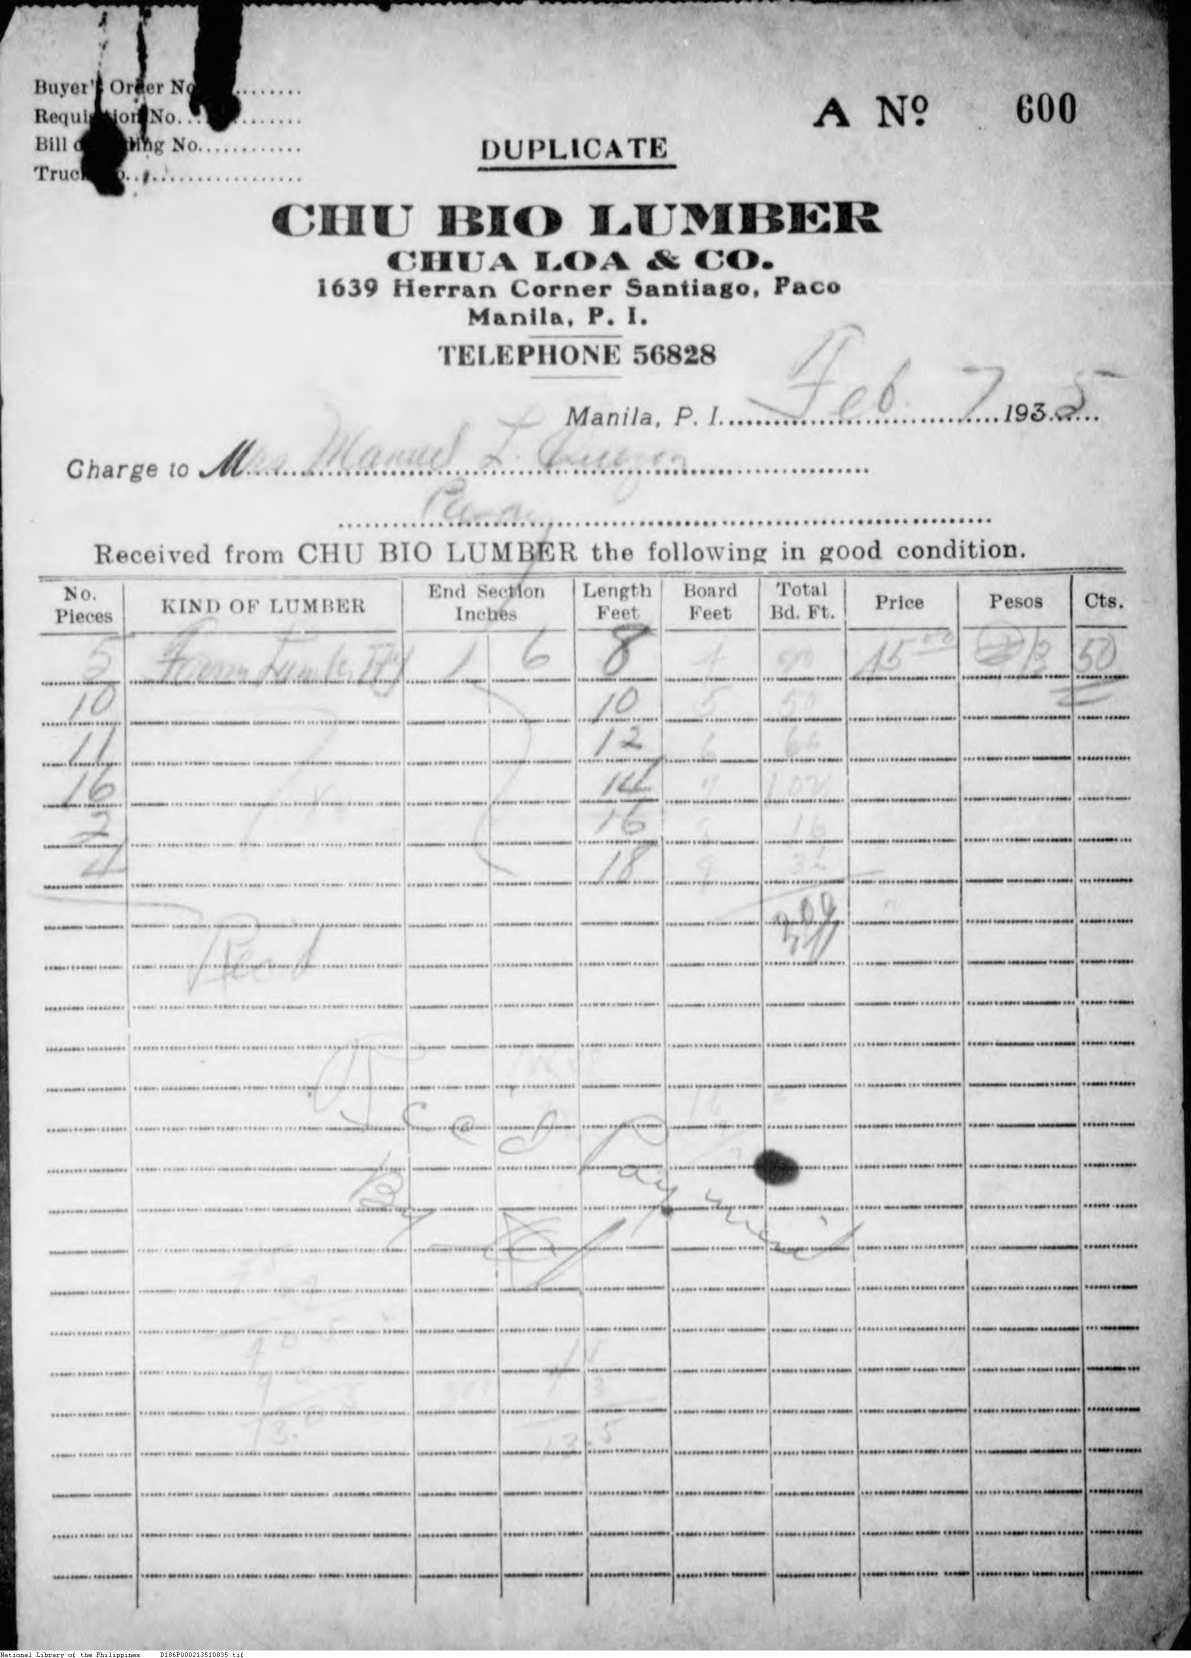 Buyer's Order No.
Requisition No.
Bill of Lading No.
Truck No.
A Nº 600
DUPLICATE
CHU BIO LUMBER
CHUA LOA & CO.
1639 Herran Corner Santiago, Paco
Manila, P. I.
TELEPHONE 56828
Manila, P. I. Feb. 7 1935
Charge to Mrs Manuel L. Quezon
Pasay
Received from CHU BIO LUMBER the following in good condition.
No. Pieces KIND OF LUMBER End Section Inches Length Feet Board Feet Total Bd. Ft. Price Pesos Cts.
5 Lumber 1 6 8 4 15 00 12 50
10 10 5 50
11 12 6 66
16 14 7
2 16 16
4 18 9
Paid
Rec'd Payment
By
13.5
National Library of the Philippines D186P000213510835.tif